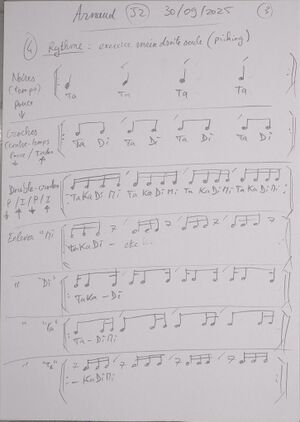 Arnaud J2 30/09/2025 3
4 Rythme : exercice main droite seule (picking)
Noires (temps) pouce
Ta Ta Ta Ta
Croches (contre-temps Pouce / Index)
Ta Di Ta Di Ta Di Ta Di
Double-croches P / I / P / I
TaKaDiMi TaKaDiMi TaKaDiMi TaKaDiMi
Enlever "Mi"
TaKaDi - etc...
" "Di"
TaKa - Di
" "Ka"
Ta - DiMi
" "Ta"
- KaDiMi